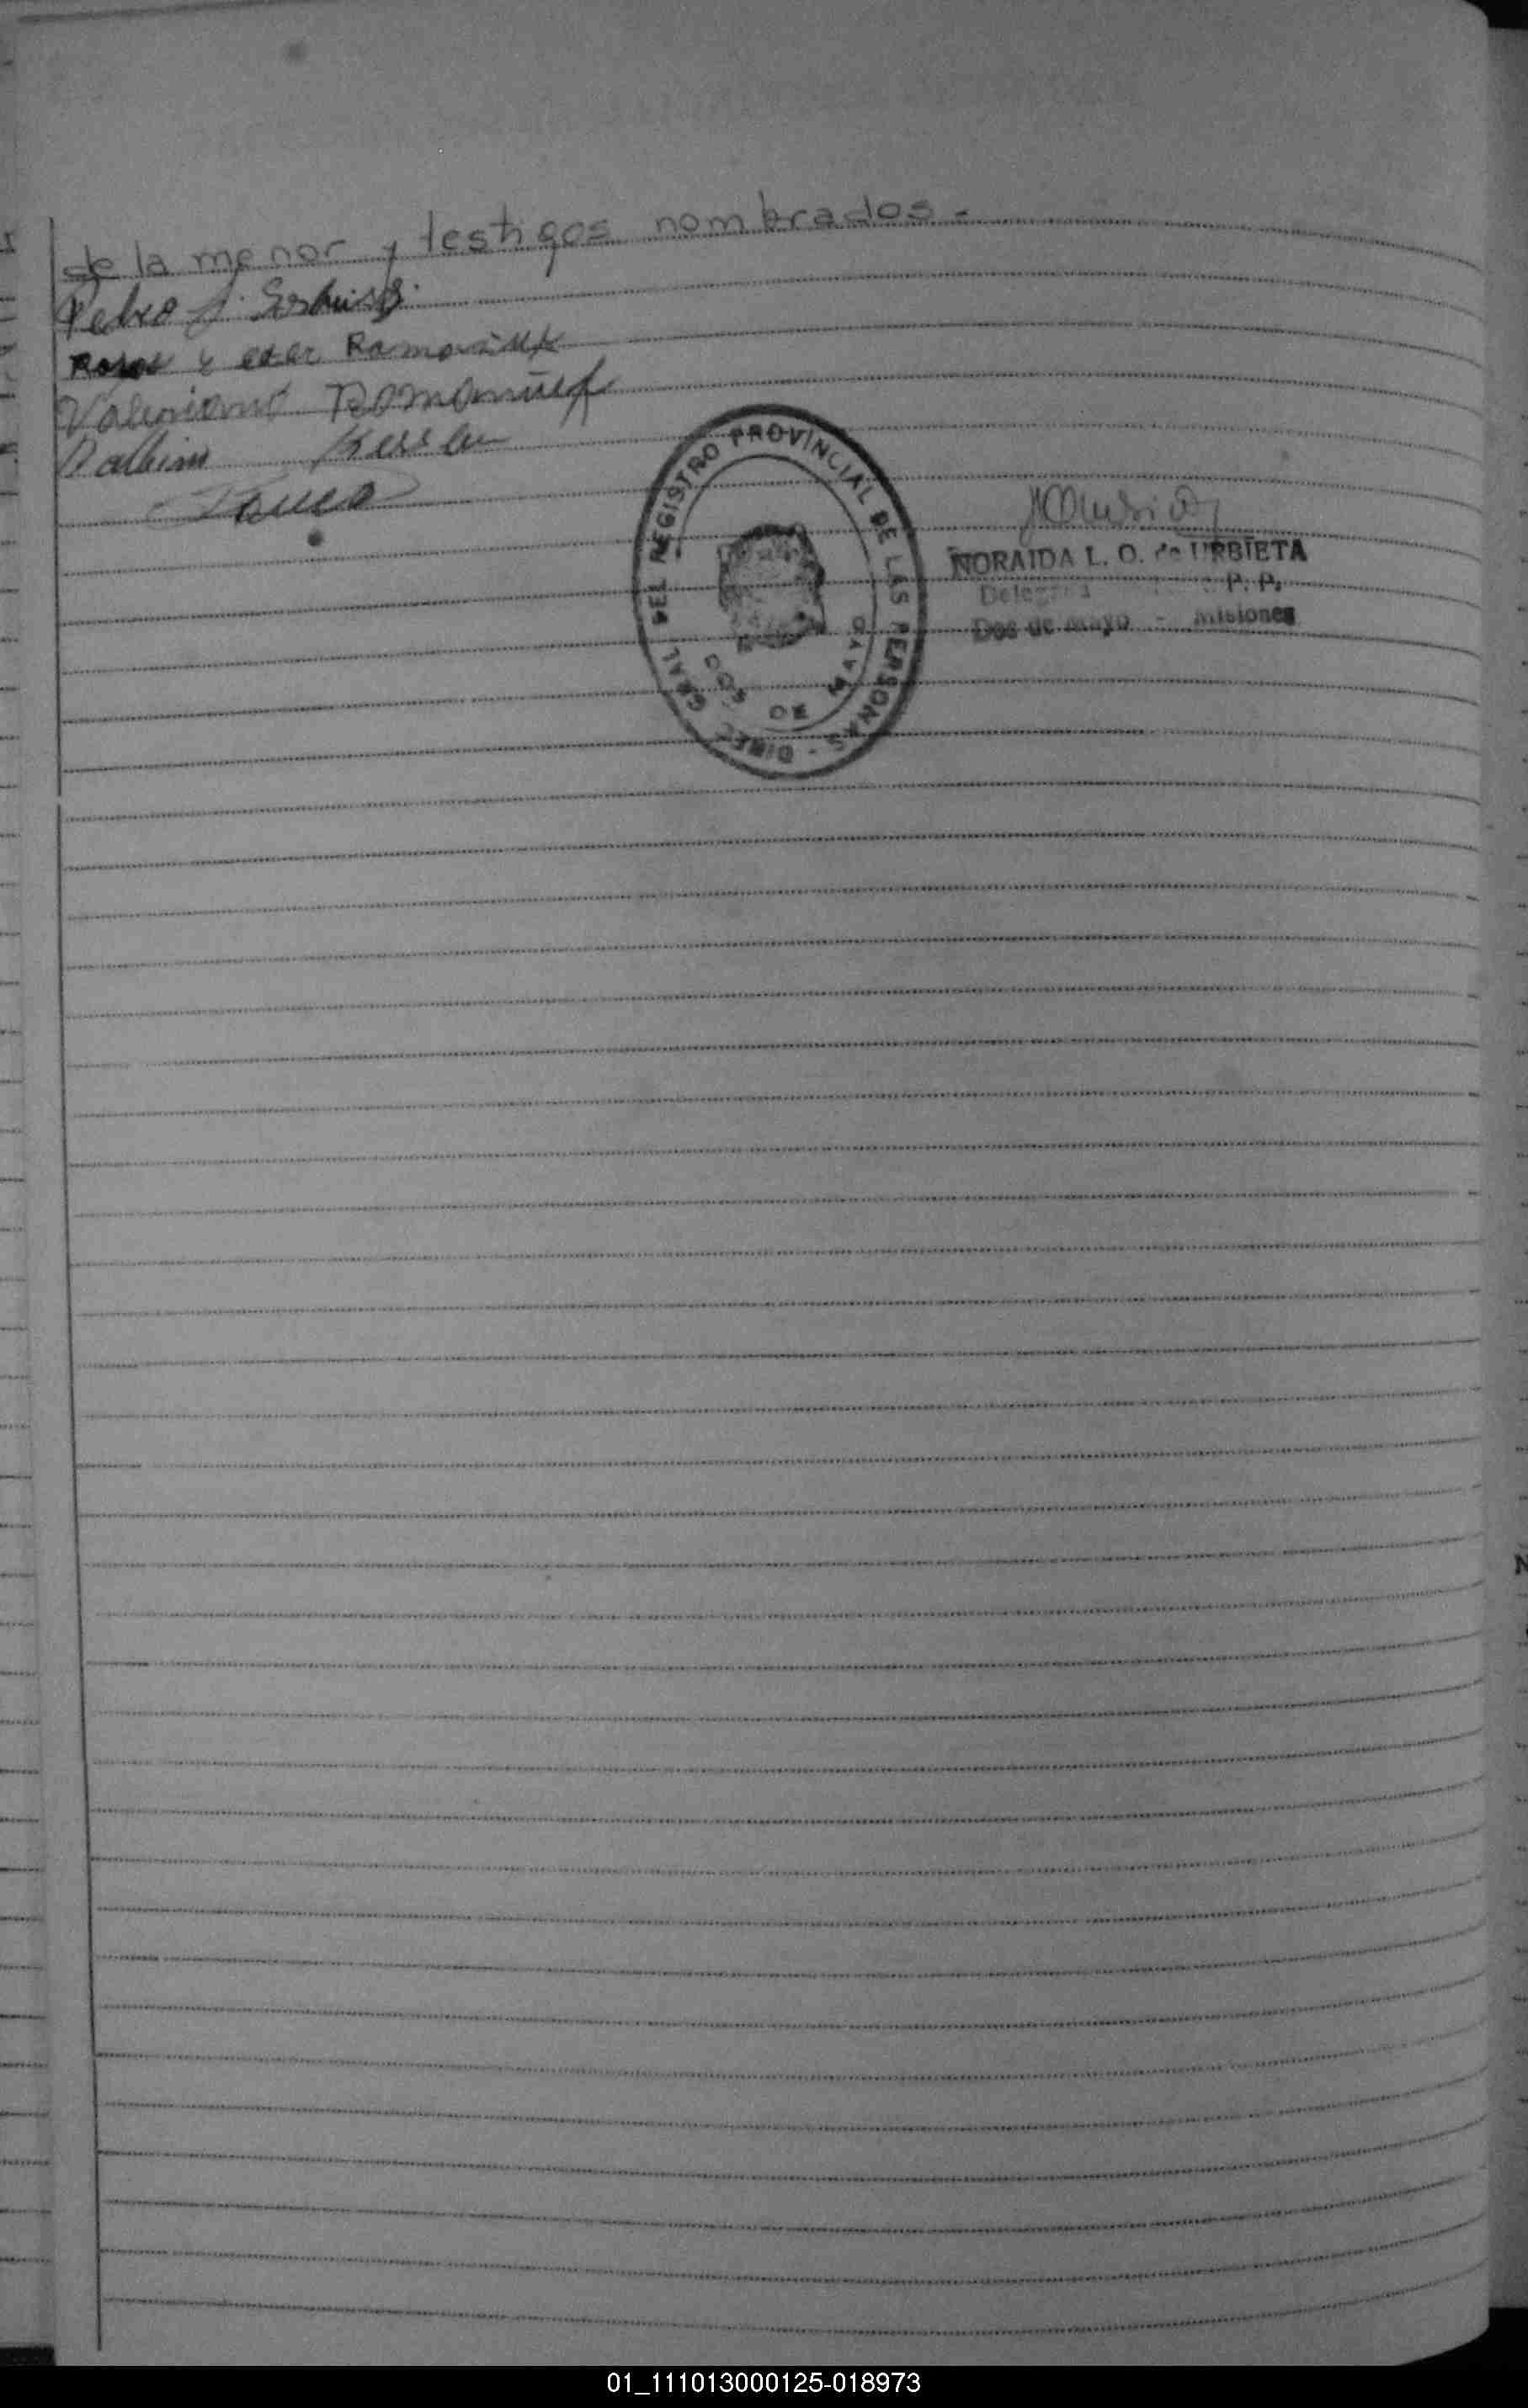 de la menor y testigos nombrados.-
Pedro J.
Romaniuk
Valeriano Romaniuk
Balbino Kessler
DIREC. GRAL. DEL REGISTRO PROVINCIAL DE LAS PERSONAS -
DOS DE MAYO
NORAIDA L. O. de URBIETA
Delegada P. P.
Dos de Mayo - Misiones
01_111013000125-018973